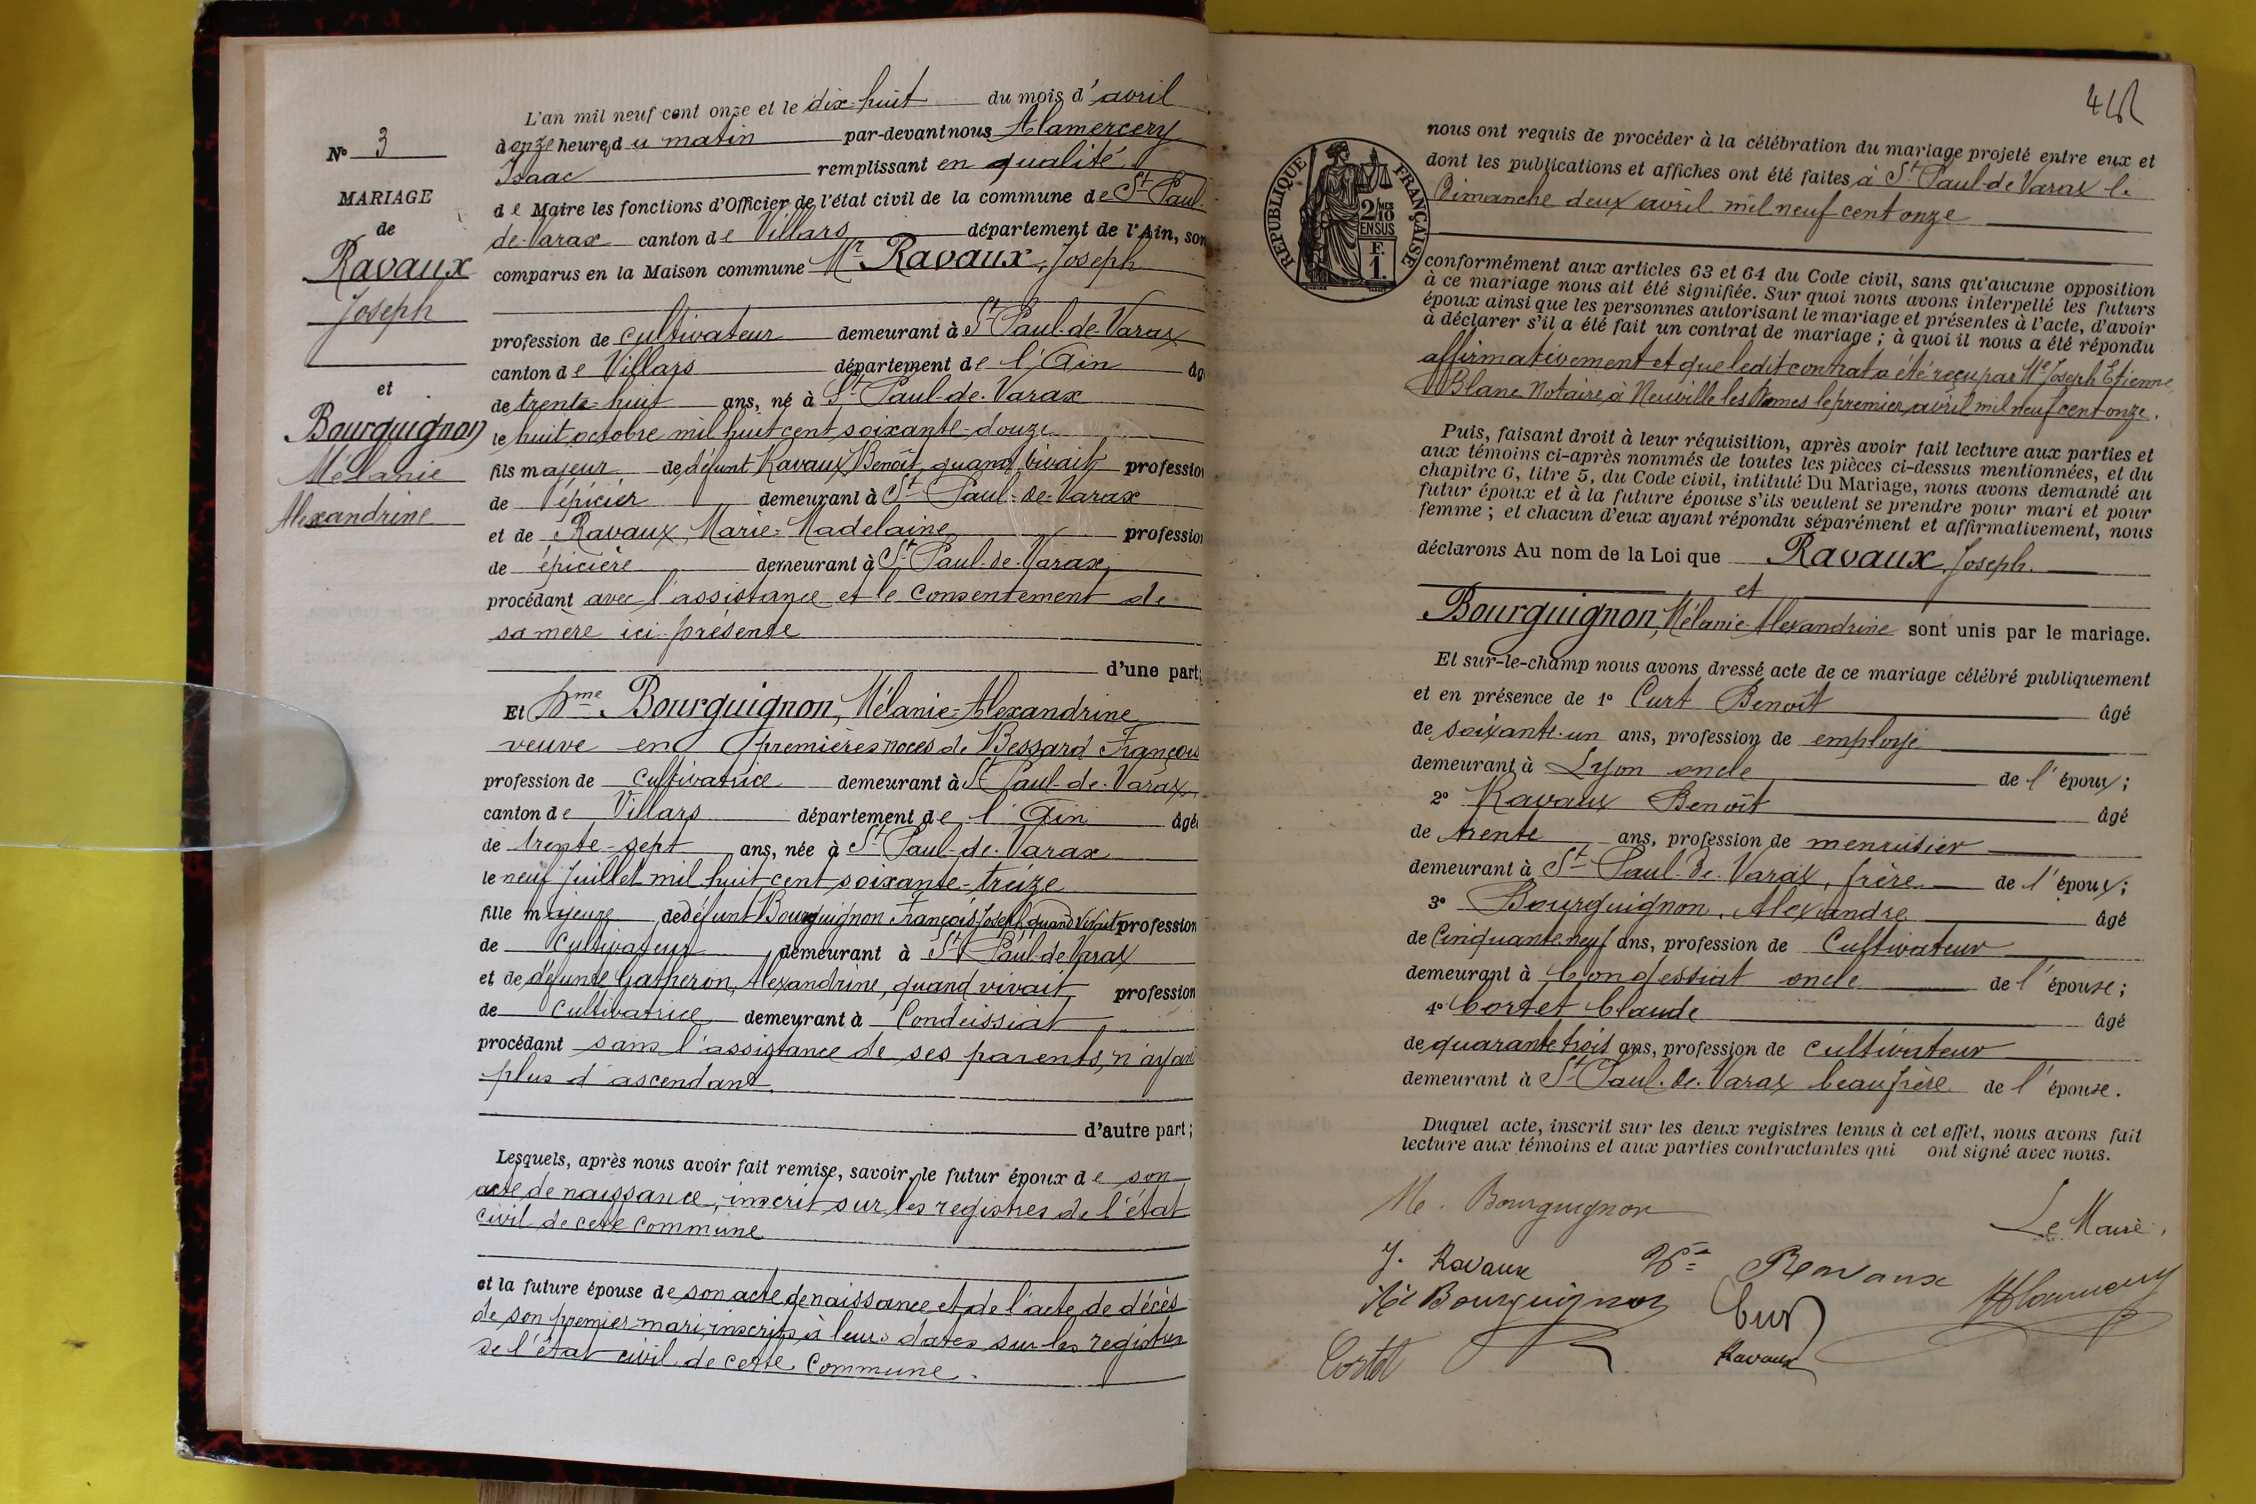 N° 3
MARIAGE
de
Ravaux
Joseph
et
Bourguignon
Mélanie
Alexandrine
L'an mil neuf cent onze et le dix-huit du mois d'avril
à onze heures du matin par-devant nous Alamercery
Isaac remplissant en qualité
de Maire les fonctions d'Officier de l'état civil de la commune de St Paul-
de-Varax canton de Villars département de l'Ain, son
comparus en la Maison commune Mr Ravaux, Joseph
profession de cultivateur demeurant à St Paul-de-Varax
canton de Villars département de l'Ain âg
de trente-huit ans, né à St Paul-de-Varax
le huit octobre mil huit cent soixante-douze
fils majeur de défunt Ravaux Benoît, quand vivait profession
de épicier demeurant à St Paul-de-Varax
et de Ravaux, Marie-Madelaine profession
de épicière demeurant à St Paul-de-Varax,
procédant avec l'assistance et le consentement de
sa mère ici présente
d'une part;
Et Mme Bourguignon, Mélanie-Alexandrine
veuve en premières noces de Bessard François
profession de cultivatrice demeurant à St Paul-de-Varax,
canton de Villars département de l'Ain âgé
de trente-sept ans, née à St Paul-de-Varax
le neuf Juillet mil huit cent soixante-treize
fille majeure de défunt Bourguignon François Joseph, quand vivait profession
de Cultivateur demeurant à St Paul-de-Varax
et de défunte Gatheron, Alexandrine, quand vivait, profession
de Cultivatrice demeurant à Condeissiat
procédant sans l'assistance de ses parents, n'ayant
plus d'ascendant
d'autre part;
Lesquels, après nous avoir fait remise, savoir, le futur époux de son
acte de naissance, inscrit sur les registres de l'état
civil de cette commune
et la future épouse de son acte de naissance et de l'acte de décès
de son premier mari, inscrits à leurs dates sur les registres
de l'état civil de cette commune.
RÉPUBLIQUE FRANÇAISE
2/10 EN SUS
F. 1.
nous ont requis de procéder à la célébration du mariage projeté entre eux et
dont les publications et affiches ont été faites à St Paul-de-Varax le
Dimanche deux avril mil neuf cent onze
conformément aux articles 63 et 64 du Code civil, sans qu'aucune opposition
à ce mariage nous ait été signifiée. Sur quoi nous avons interpellé les futurs
époux ainsi que les personnes autorisant le mariage et présentes à l'acte, d'avoir
à déclarer s'il a été fait un contrat de mariage ; à quoi il nous a été répondu
affirmativement et que ledit contrat a été reçu par Me Joseph Etienne
Blanc Notaire à Neuville les Dames le premier avril mil neuf cent onze.
Puis, faisant droit à leur réquisition, après avoir fait lecture aux parties et
aux témoins ci-après nommés de toutes les pièces ci-dessus mentionnées, et du
chapitre 6, titre 5, du Code civil, intitulé Du Mariage, nous avons demandé au
futur époux et à la future épouse s'ils veulent se prendre pour mari et pour
femme ; et chacun d'eux ayant répondu séparément et affirmativement, nous
déclarons Au nom de la Loi que Ravaux, Joseph.
et
Bourguignon, Mélanie-Alexandrine sont unis par le mariage.
Et sur-le-champ nous avons dressé acte de ce mariage célébré publiquement
et en présence de 1° Curt Benoît âgé
de soixante-un ans, profession de employé
demeurant à Lyon oncle de l'époux;
2° Ravaux Benoît âgé
de trente ans, profession de menuisier
demeurant à St Paul-de-Varax, frère de l'époux;
3° Bourguignon, Alexandre âgé
de Cinquante neuf ans, profession de Cultivateur
demeurant à Condessiat oncle de l'épouse;
4° Cortet Claude âgé
de quarante trois ans, profession de cultivateur
demeurant à St Paul-de-Varax beau frère de l'épouse.
Duquel acte, inscrit sur les deux registres tenus à cet effet, nous avons fait
lecture aux témoins et aux parties contractantes qui ont signé avec nous.
M. Bourguignon
Le Maire,
J. Ravaux Vve Ravaux
Bourguignon Curt Alamercery
Cortet Ravaux